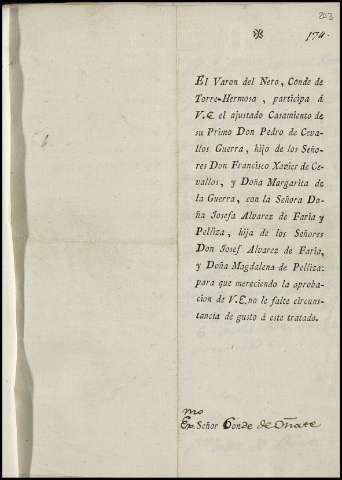 203
174.
El Varon del Nero, Conde de
Torre-Hermosa, participa á
V.E. el ajustado Casamiento de
su Primo Don Pedro de Ceva-
llos Guerra, hijo de los Seño-
res Don Francisco Xavier de Ce-
vallos, y Doña Margarita de
la Guerra, con la Señora Do-
ña Josefa Alvarez de Faria y
Pelliza, hija de los Señores
Don Josef Alvarez de Faria,
y Doña Magdalena de Pelliza:
para que mereciendo la aproba-
cion de V.E. no le falte circuns-
tancia de gusto á este tratado.
mo
Ex. Señor Conde de Oñate